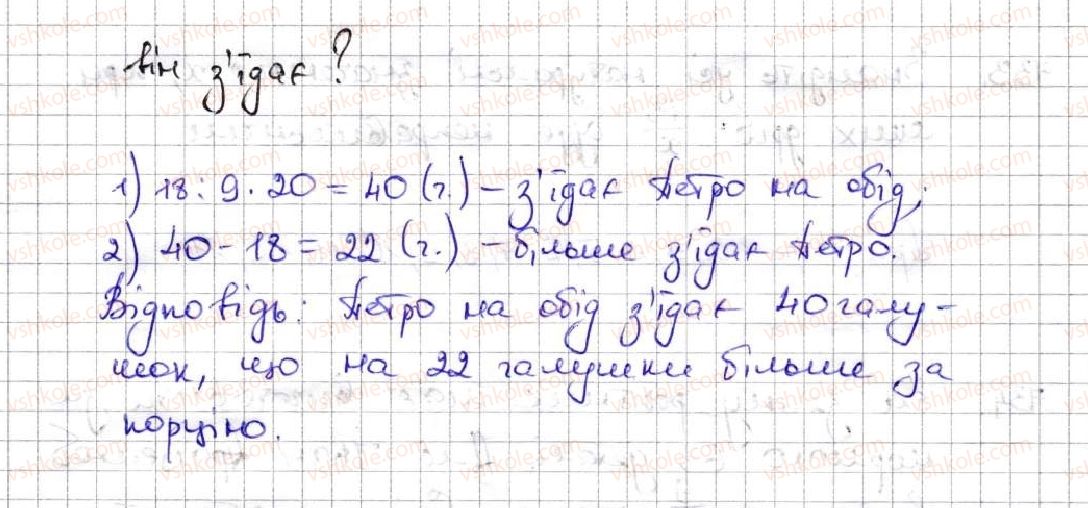 він з'їдає?
1) 18 : 9 · 20 = 40 (г.) – з'їдає Петро на обід;
2) 40 – 18 = 22 (г.) – більше з'їдає Петро.
Відповідь: Петро на обід з'їдає 40 галу-
шок, що на 22 галушки більше за
порцію.